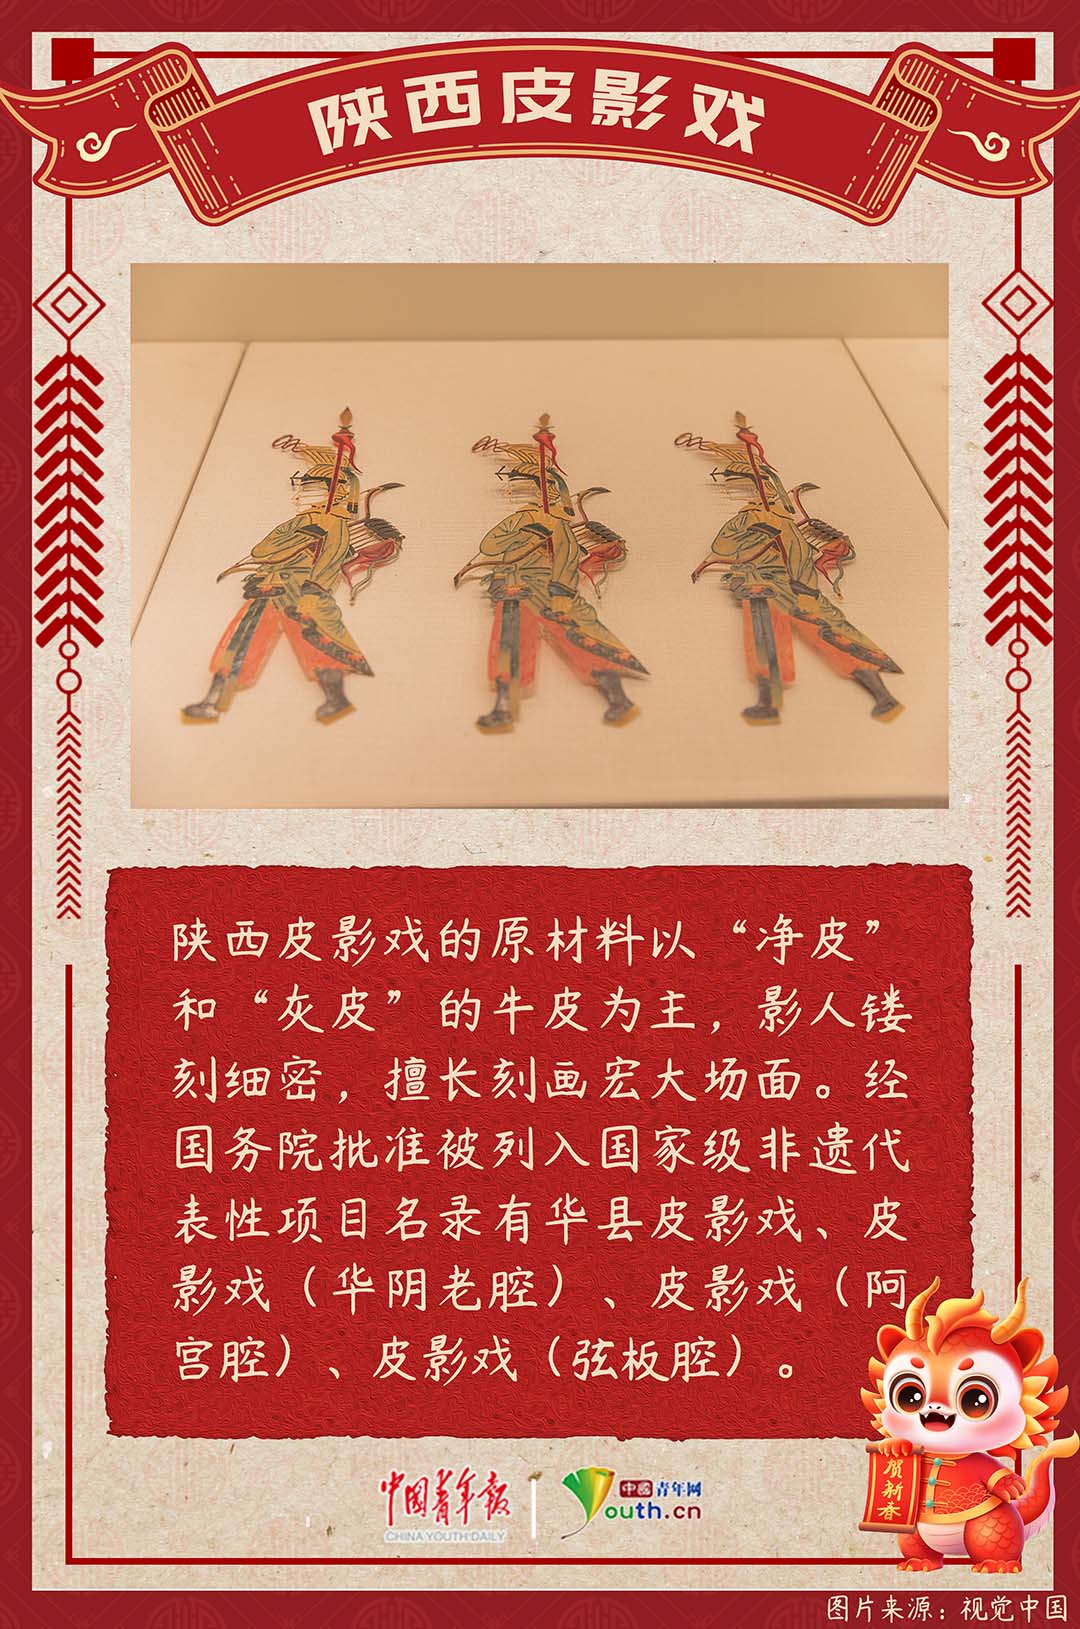 陕西皮影戏
陕西皮影戏的原材料以“净皮”
和“灰皮”的牛皮为主，影人镂
刻细密，擅长刻画宏大场面。经
国务院批准被列入国家级非遗代
表性项目名录有华县皮影戏、皮
影戏（华阴老腔）、皮影戏（阿
宫腔）、皮影戏（弦板腔）。
贺新春
中国青年报
CHINA YOUTH DAILY
中國青年网
Youth.cn
图片来源：视觉中国